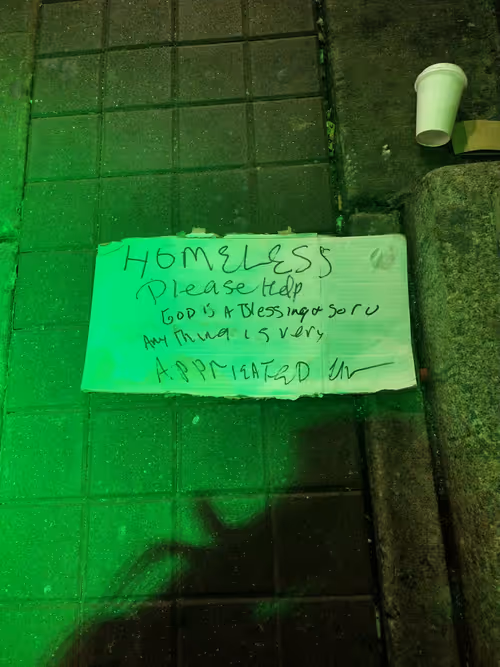 HOMELESS
Please Help
GOD is A Blessing & So r U
Any thing is very
APPRIEATED